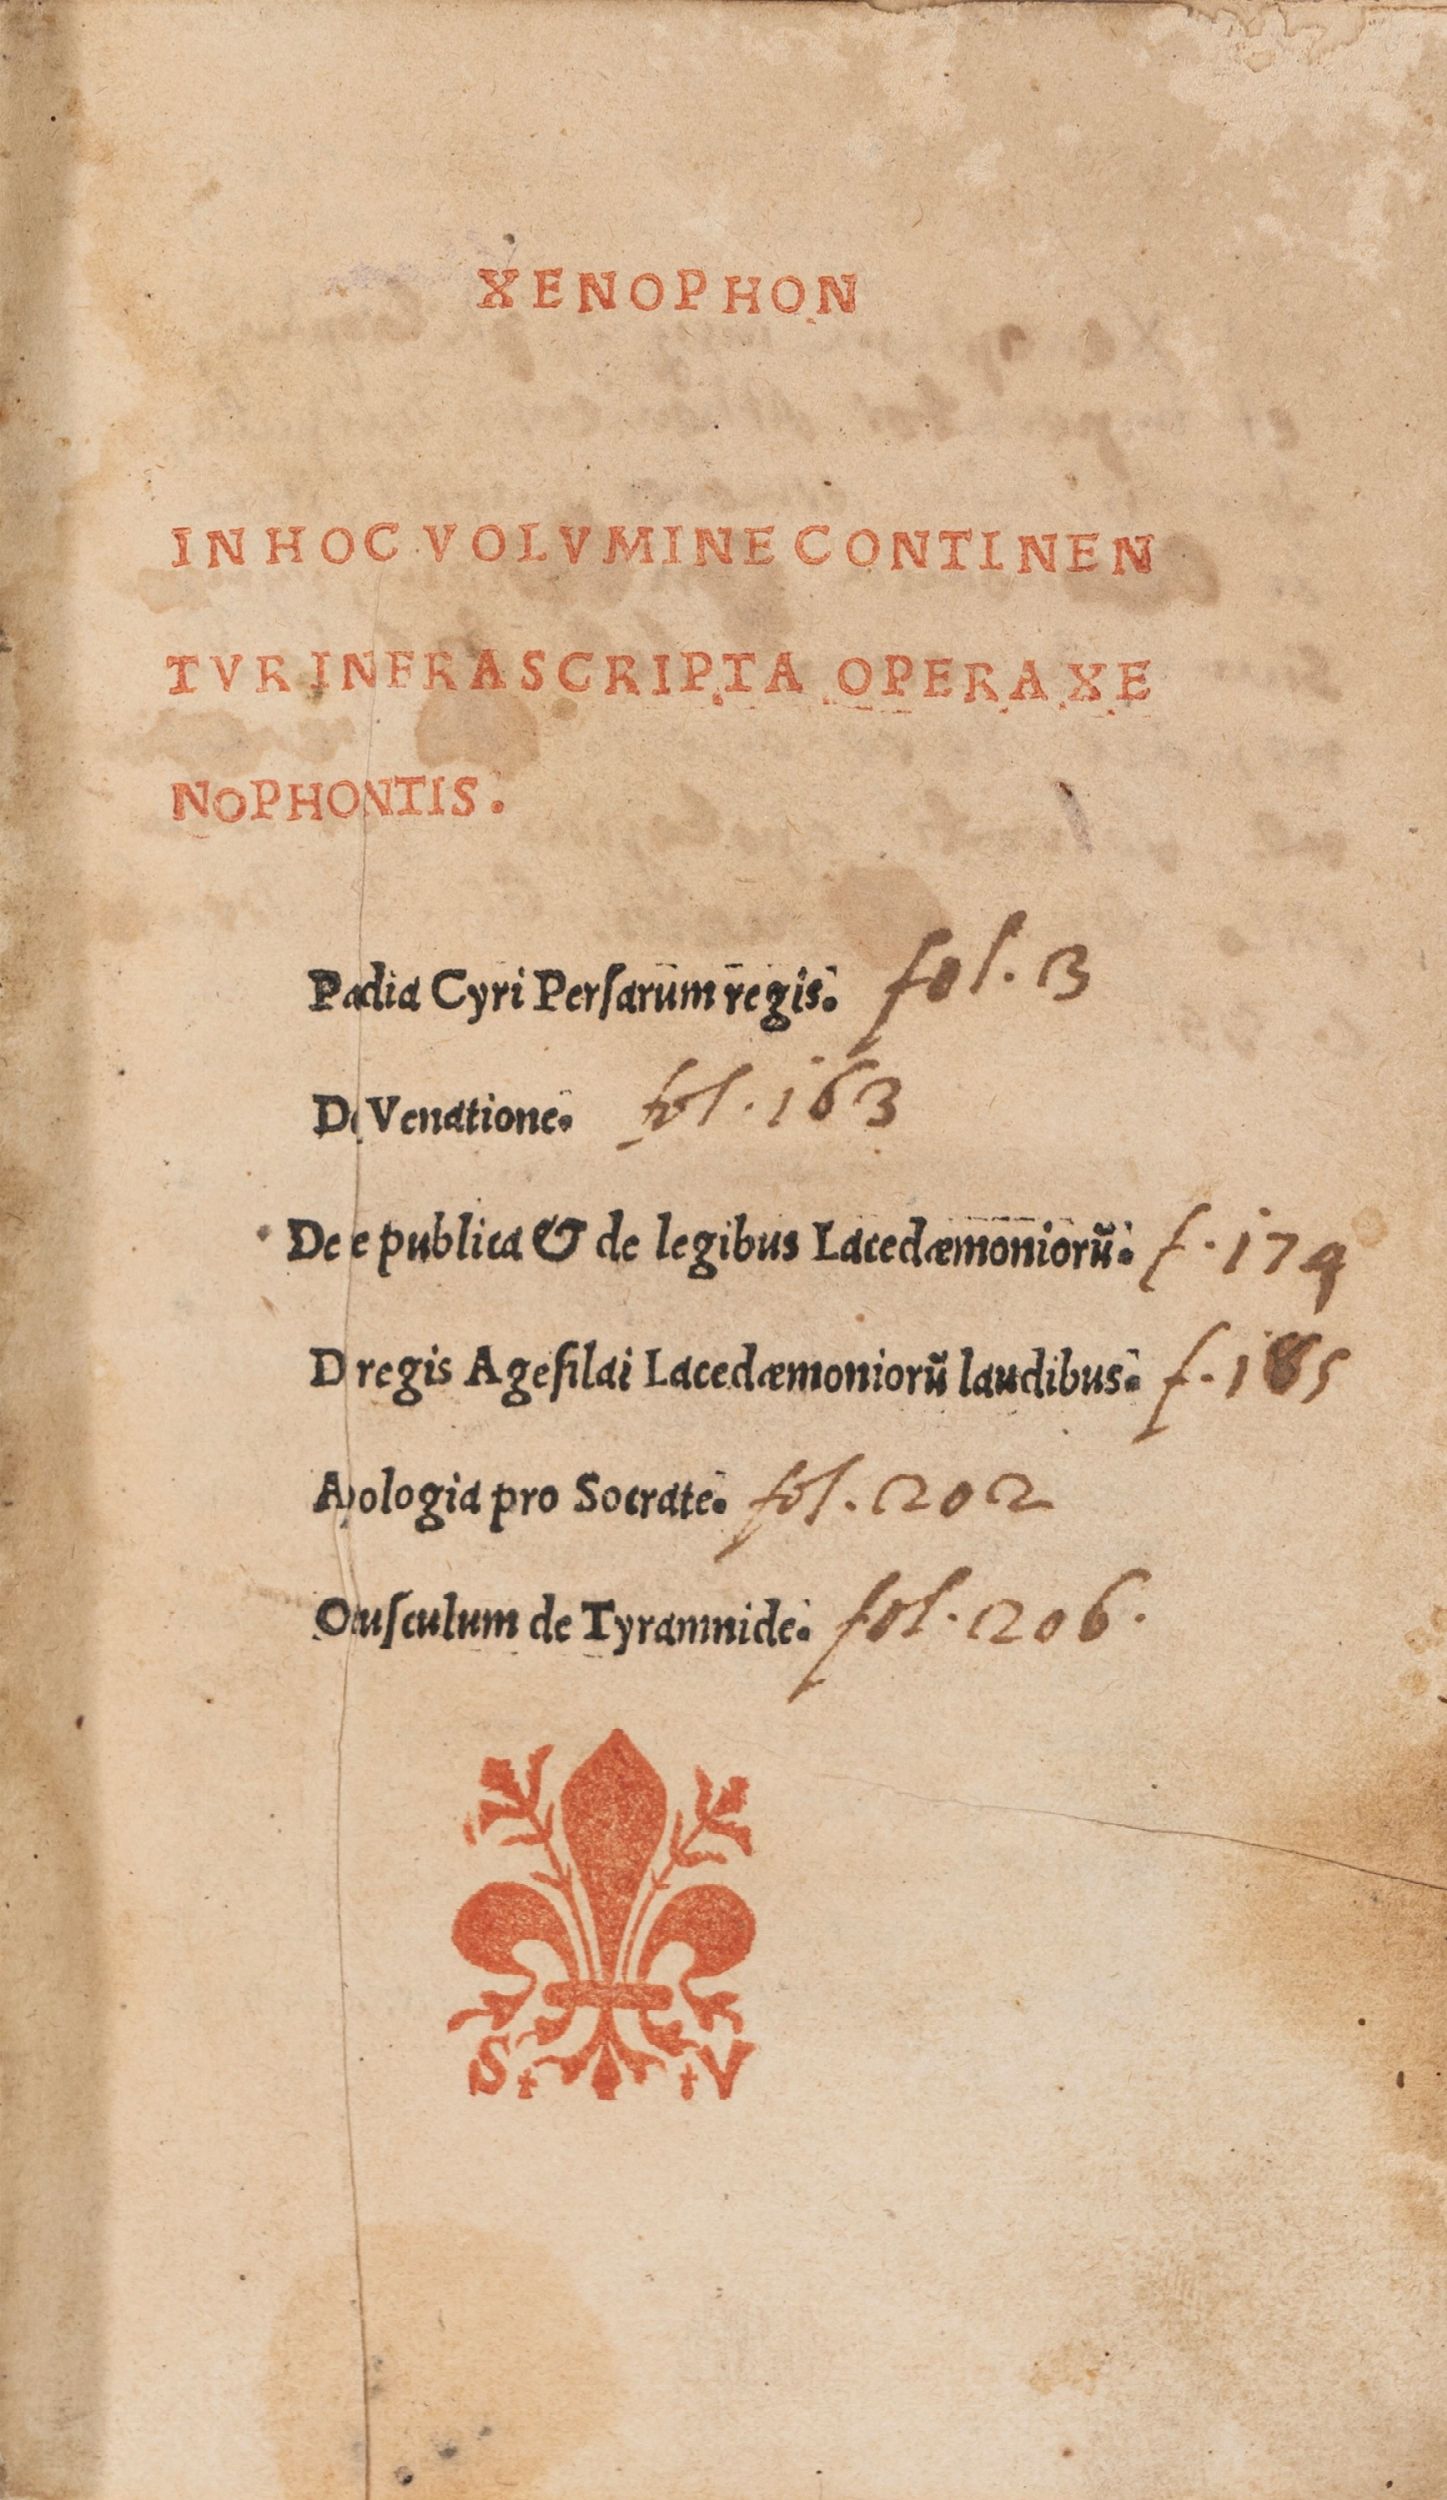 XENOPHON
IN HOC VOLVMINE CONTINEN
TVR INFRASCRIPTA OPERA XE
NOPHONTIS.
Pædia Cyri Persarum regis. fol. 3
De Venatione. fol. 163
De re publica & de legibus Lacedæmoniorū. f. 174
D regis Agesilai Lacedæmoniorū laudibus. f. 185
Apologia pro Socrate. fol. 202
Opusculum de Tyrannide. fol. 206.
S. .V